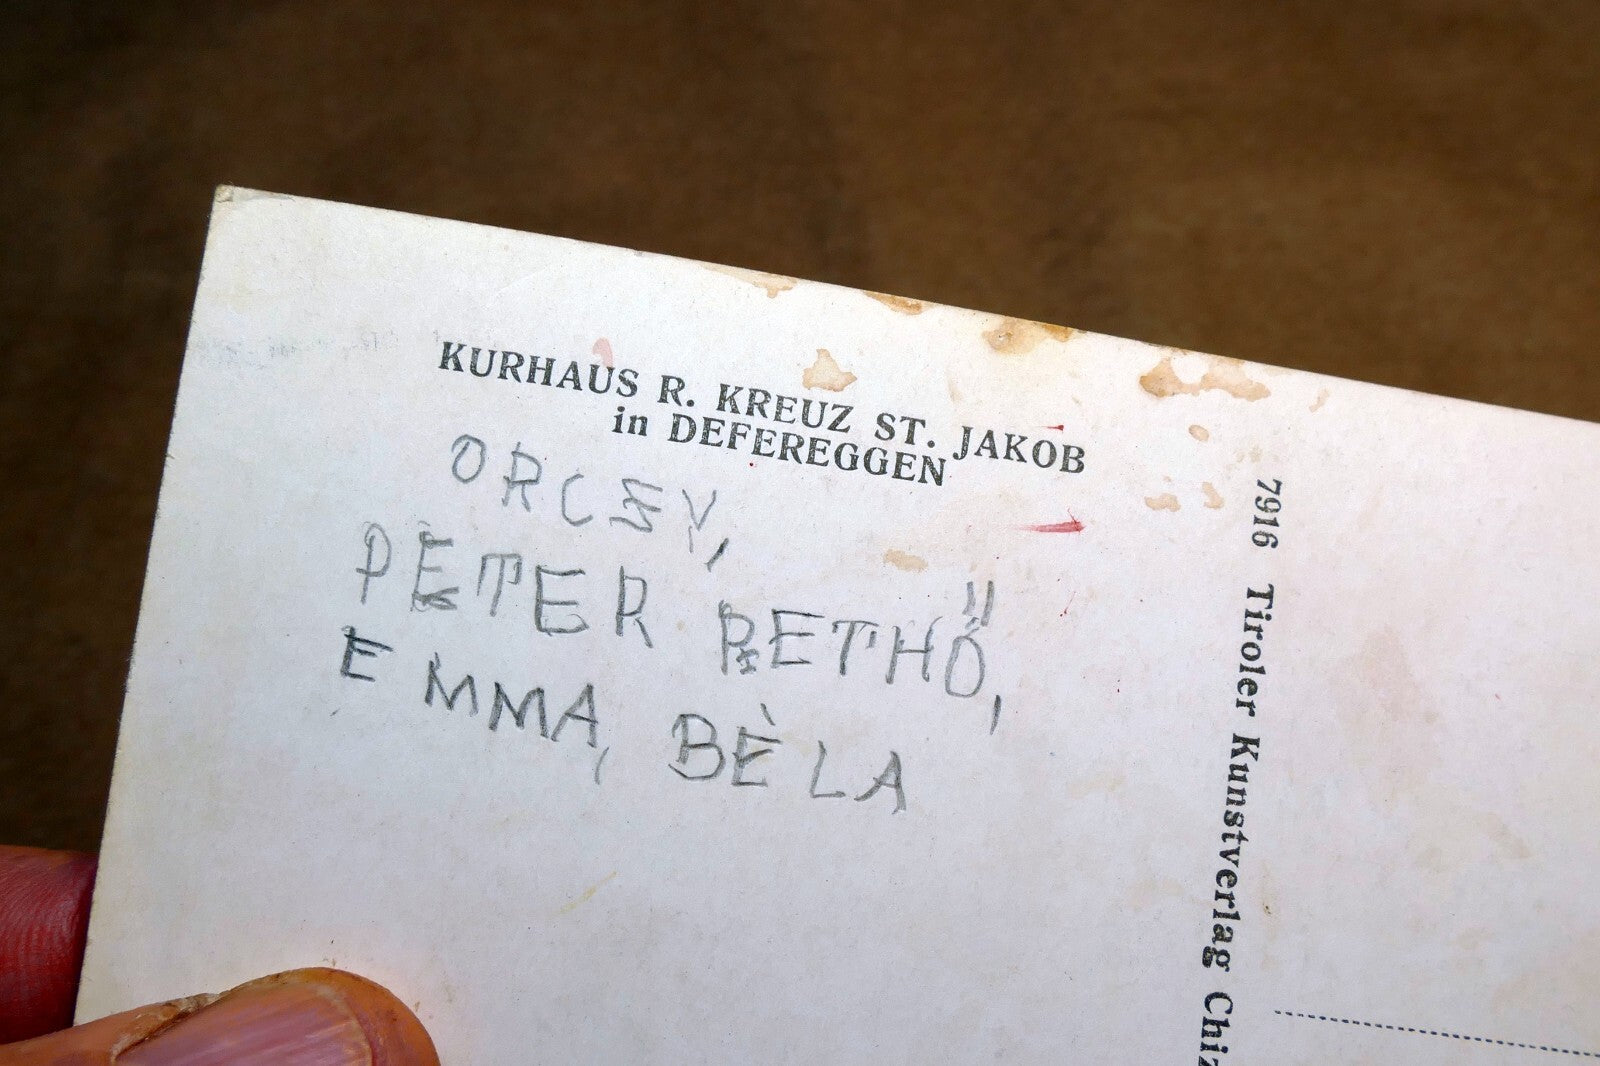 KURHAUS R. KREUZ ST. JAKOB
in DEFEREGGEN
ORCSY,
PETER PETHŐ,
EMMA, BÈLA
7916 Tiroler Kunstverlag Chiz